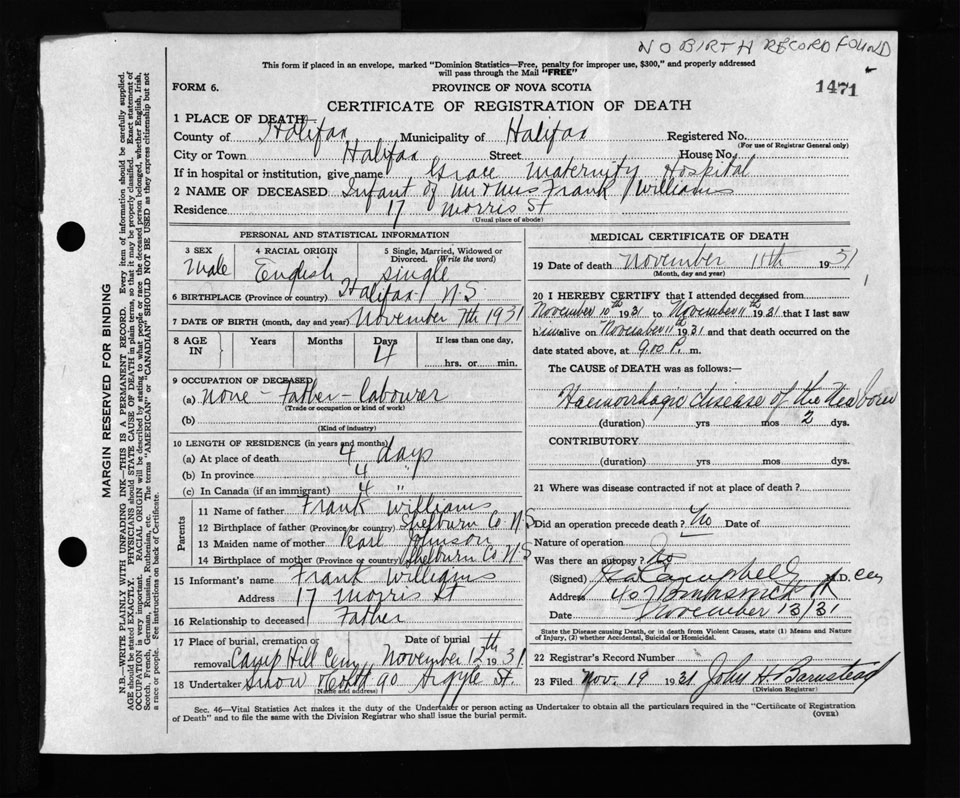 NO BIRTH RECORD FOUND
This form if placed in an envelope, marked "Dominion Statistics—Free, penalty for improper use, $300," and properly addressed
will pass through the Mail "FREE"
FORM 6. PROVINCE OF NOVA SCOTIA 1471
CERTIFICATE OF REGISTRATION OF DEATH
1 PLACE OF DEATH
County of Halifax Municipality of Halifax Registered No.
(For use of Registrar General only)
City or Town Halifax Street House No.
If in hospital or institution, give name Grace Maternity Hospital
2 NAME OF DECEASED Infant of Mr & Mrs Frank Williams
Residence 17 Morris St
(Usual place of abode)
PERSONAL AND STATISTICAL INFORMATION
3 SEX 4 RACIAL ORIGIN 5 Single, Married, Widowed or
Divorced. (Write the word)
Male English single
6 BIRTHPLACE (Province or country) Halifax N.S
7 DATE OF BIRTH (month, day and year) November 7th 1931
8 AGE Years Months Days If less than one day,
IN 4 hrs. or min.
9 OCCUPATION OF DECEASED
(a) None - Father - labourer
(Trade or occupation or kind of work)
(b)
(Kind of industry)
10 LENGTH OF RESIDENCE (in years and months)
(a) At place of death 4 days
(b) In province 4 "
(c) In Canada (if an immigrant) 4 "
Parents
11 Name of father Frank Williams
12 Birthplace of father (Province or country) Shelburn Co N.S
13 Maiden name of mother Pearl Johnson
14 Birthplace of mother (Province or country) Shelburn Co N.S
15 Informant's name Frank Williams
Address 17 Morris St
16 Relationship to deceased Father
17 Place of burial, cremation or Date of burial
removal Camp Hill Cemy November 12th 1931
18 Undertaker Snow & Co Ltd 90 Argyle St.
(Name and address)
MEDICAL CERTIFICATE OF DEATH
19 Date of death November 11th 1931
(Month, day and year)
20 I HEREBY CERTIFY that I attended deceased from
November 10th 1931 to November 11th 1931 that I last saw
him alive on November 11th 1931 and that death occurred on the
date stated above, at 9.00 P. m.
The CAUSE of DEATH was as follows:—
Haemorrhagic disease of the New born
(duration) yrs mos 2 dys.
CONTRIBUTORY
(duration) yrs mos dys.
21 Where was disease contracted if not at place of death?
Did an operation precede death? No Date of
Nature of operation
Was there an autopsy? No
(Signed) Campbell M.D.
Address
Date November 13/31
State the Disease causing Death, or in death from Violent Causes, state (1) Means and Nature
of Injury, (2) whether Accidental, Suicidal or Homicidal.
22 Registrar's Record Number
23 Filed Nov. 19 1931 John H Barnstead
(Division Registrar)
Sec. 46—Vital Statistics Act makes it the duty of the Undertaker or person acting as Undertaker to obtain all the particulars required in the "Certificate of Registration
of Death" and to file the same with the Division Registrar who shall issue the burial permit. (OVER)
MARGIN RESERVED FOR BINDING
N.B.—WRITE PLAINLY WITH UNFADING INK—THIS IS A PERMANENT RECORD. Every item of information should be carefully supplied.
AGE should be stated EXACTLY. PHYSICIANS should STATE CAUSE OF DEATH in plain terms, so that it may be properly classified. Exact statement of
OCCUPATION is very important. RACIAL ORIGIN will be described by stating to what people or race the deceased person belonged, whether English, Irish,
Scotch, French, German, Russian, Ruthenian, etc. The terms "AMERICAN" or "CANADIAN" SHOULD NOT BE USED as they express citizenship but not
a race or people. See instructions on back of Certificate.